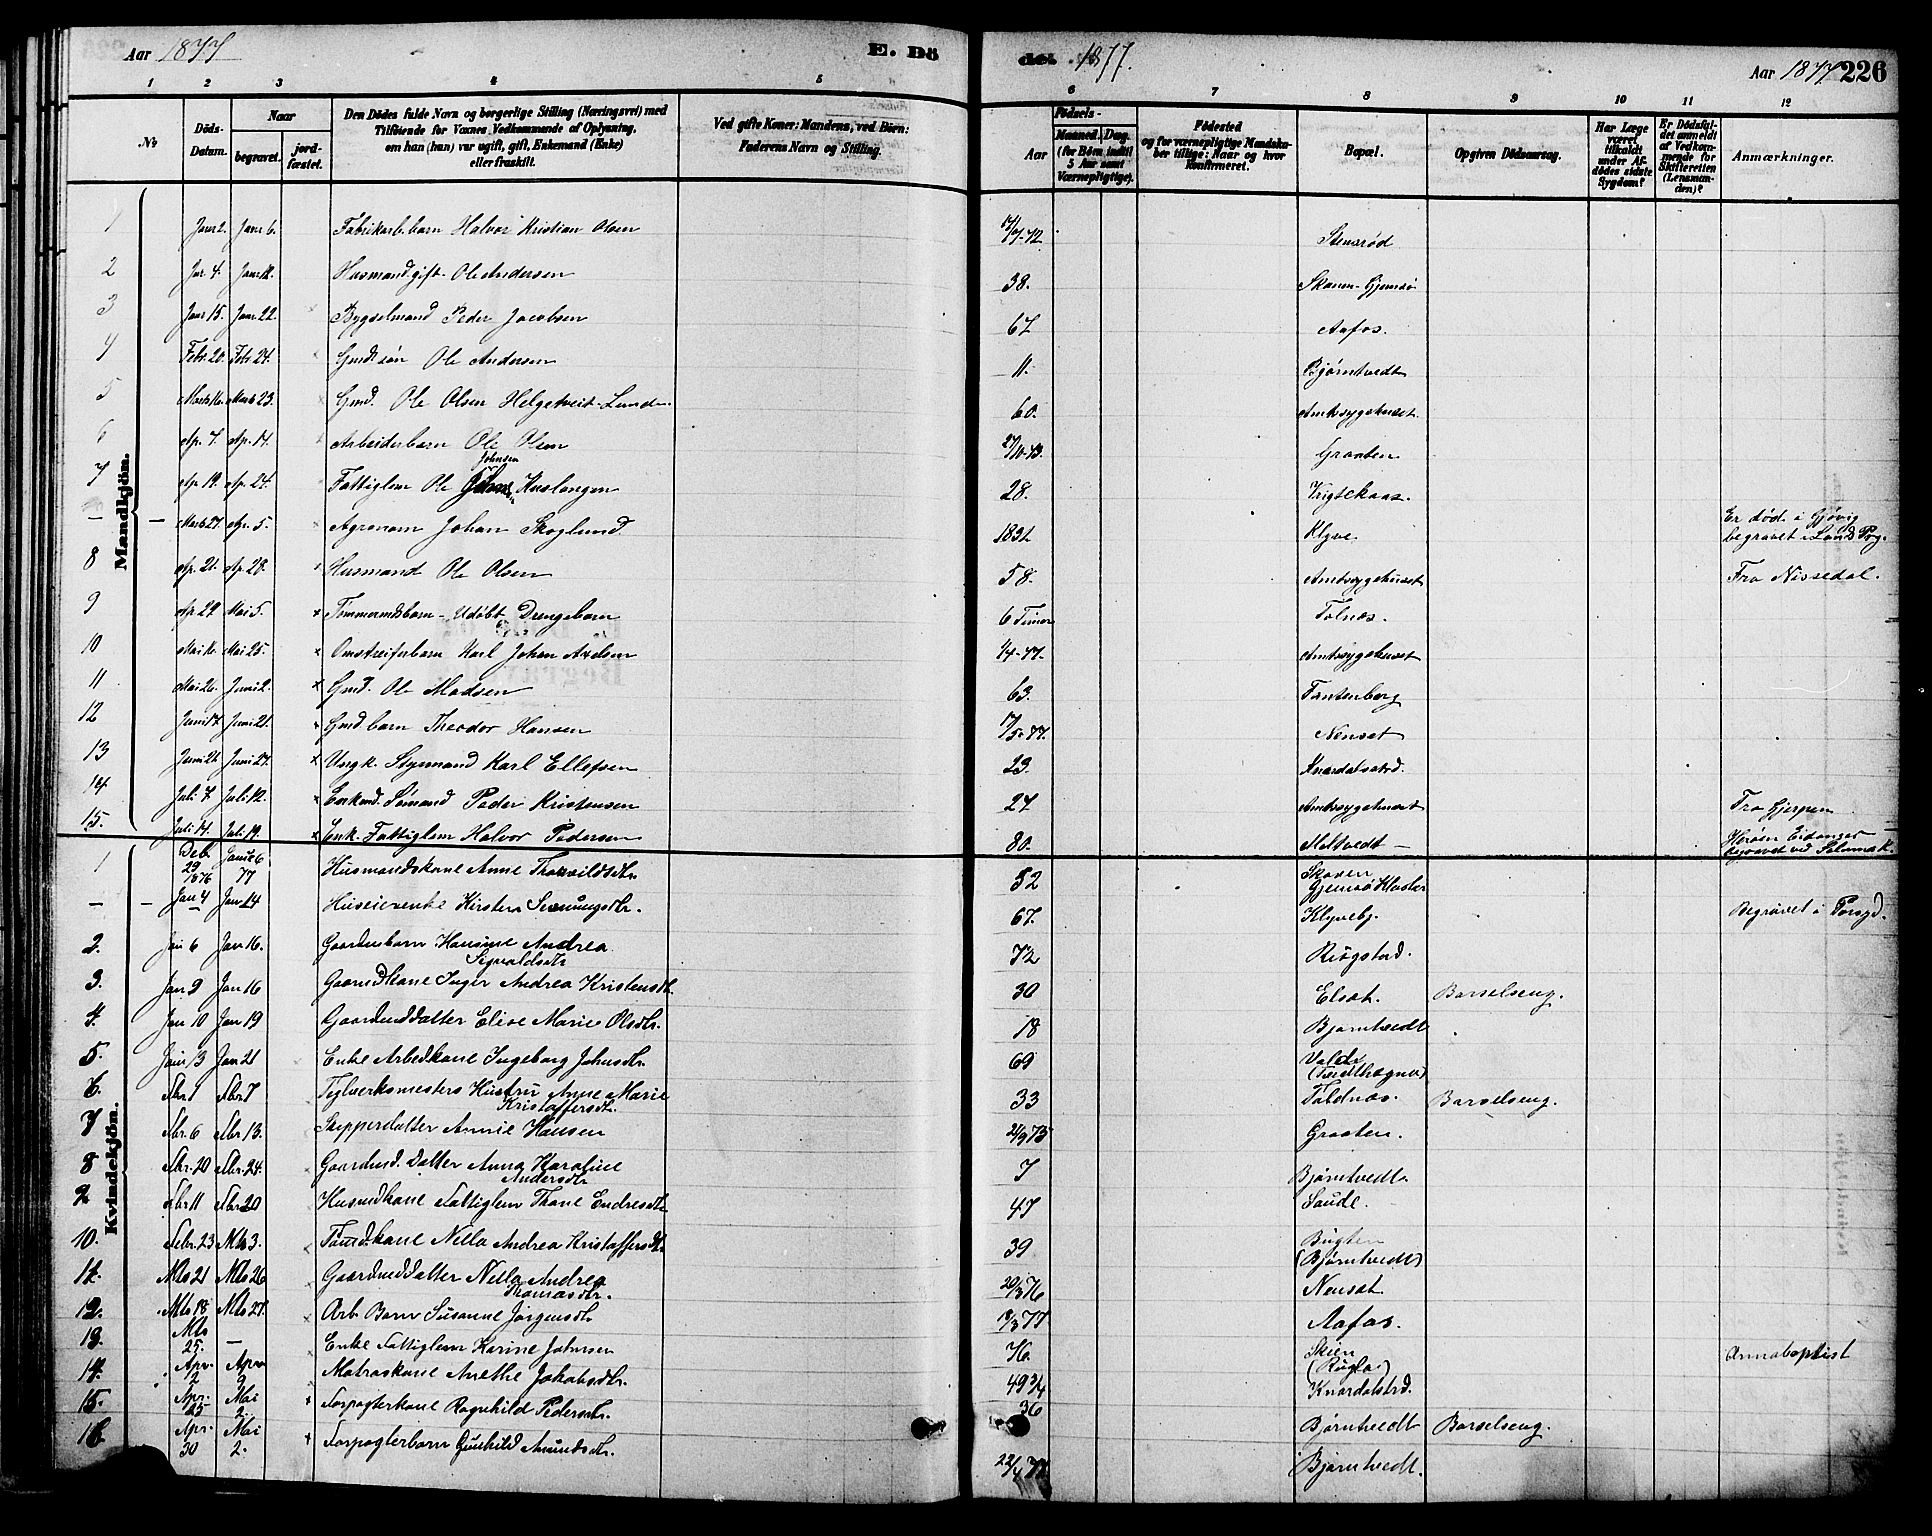 Aar 1877
E. Dö
de. 1877.
Aar 1877 226
1 2 3 4 5 6 7 8 9 10 11 12
No
Döds-Datum.
Naar
begravet.
jord-fæstet.
Den Dödes fulde Navn og borgerlige Stilling (Næringsvei) med
Tilföiende for Voxnes Vedkommende af Oplysning,
om han (hun) var ugift, gift, Enkemand (Enke)
eller fraskilt.
Ved gifte Koner: Mandens, ved Börn:
Faderens Navn og Stilling.
Födsels-
Aar
Maaned. Dag.
(for Börn indtil
5 Aar samt
Værnepligtige).
Födested
og for værnepligtige Mandska-
ber tillige: Naar og hvor
Konfirmeret.
Bopæl.
Opgiven Dödsaarsag.
Har Læge
været
tilkaldt
under Af-
dödes sidste
Sygdom?
Er Dödsfal-
det anmeldt
af Vedkom-
mende for
Skifteretten
(Lensman-
den)?
Anmærkninger.
Mandkjön.
1 Janr 2. Janr 6. Fabrikarb. barn Halvor Kristian Olsen 17/7-72. Stensrød
2 Jar. 4. Janr 12. Husmand gift. Ole Andersen 38. Skaren-Gjemsø
3 Janr 15. Janr 22. Bygselmand Peder Jacobsen 67 Aafos.
4 Febr. 20. Febr. 24. Gmds søn Ole Andersen 11. Bjørntvedt
5 Marts 16. Marts 23. Gmd. Ole Olsen Helgetveit-Lunde 60. Amtssygehuset
6 Ap. 7. Ap. 14. Arbeiderbarn Ole Olsen 27/10-73. Graaten
7 Ap. 19. Ap. 24. Fattiglem Ole Johnsen Kaslangen 28. Vrigtekaas.
— — Marts 27. Ap. 5. Agronom Johan Skoglund 1831 Klyve. Er død i Gjøvig begravet i Lands Prg.
8 Ap. 21. Ap. 28. Husmand Ole Olsen 58. Amtssygehuset Fra Nissedal.
9 Ap 29 Mai 5. × Tømmermdsbarn - Udøbt Drengebarn 6 Timer Tolnæs.
10 Mai 16. Mai 25. × Omstreiferbarn Karl Johan Axelsen 1/4-77. Amtssygehuset
11 Mai 26. Juni 2. × Gmd. Ole Madsen 63. Fantenberg
12 Juni 17. Juni 21. Gmd barn Theodor Hansen 17/5-77. Nenset
13 Juni 21 Juni 27. × Ungk. Styrmand Karl Ellefsen 23. Knardalsstrd.
14 Juli 7. Juli 12. × Enkemd. Sømand Peder Kristensen 24 Amtssygehuset Fra Gjerpen
15. Juli 14. Juli 19. × Enk. Fattiglem Halvor Pedersen 80. Moltvedt — Herøen Eidanger begravet ved Solumsk.
Kvindekjön.
1 Deb 29 1876 Janr 6 77 Husmandskone Anne Thorvildsdtr. 52 Skaven Gjemsø Kloster
— — Jan 4 Jan 14 Huseierenke Kirsten Semmingsdtr. 67. Klyvebj. Begravet i Porsgd.
2. Jan 6 Jan 16. Gaardmbarn Hansine Andrea Sigvaldsdtr 72 Riøgstad.
3. Jan 9 Jan 16 Gaardmdkone Inger Andrea Kristensdtr. 30 Elsat. Barselseng.
4. Jan 10 Jan 19 Gaardmddatter Elise Marie Olsdtr. 18 Bjørntvedt
5. Janr 13 Jan 21 Enke Arbedkone Ingeborg Johnsdtr. 69 Valde
6. Fbr. 1 Fbr. 7 Teglverksmesters Hustru Anne Marie Kristoffersdtr. 33 Toldnæs. Barselseng.
7 Fbr. 6 Fbr. 13. Skipperdatter Annie Hansen 21/9 75 Graaten.
8 Fbr. 20 Fbr. 24. Gaardmd. Datter Anna Karoline Andersdtr 7 Bjørntvedt.
2 Fbr. 11 Fbr 20 Husmdkone Fattiglem Thone Endresdtr 47 Saude.
10. Febr. 23 Mts 3. Tømd.kone Nilla Andrea Kristoffersdtr 39 Bugten (Bjørntvedt)
11. Mts 21 Mts 26 Gaardmddatter Nilla Andrea Thomasdtr. 20/3 76 Nensat.
12. Mts 18 Mts 27. Arb Barn Susanne Jørgensdtr. 13/3 77 Aafos.
13. Mts 25. — Enke Fattiglem Karine Johnsen 76. Skien Annabaptist
14. Apr 2 Apr 9 Matroskone Anethe Jakobsdtr. 49 3/4 Knardalstrd.
15. Apr. 25 Mai 2. Forpagterkone Ragnhild Pedersdtr. 36 Bjørntvedt Barselseng.
16 Apr. 30 Mai 2. Forpagterbarn Gunhild Amundsdtr. 22/4 77 Bjørntvedt.